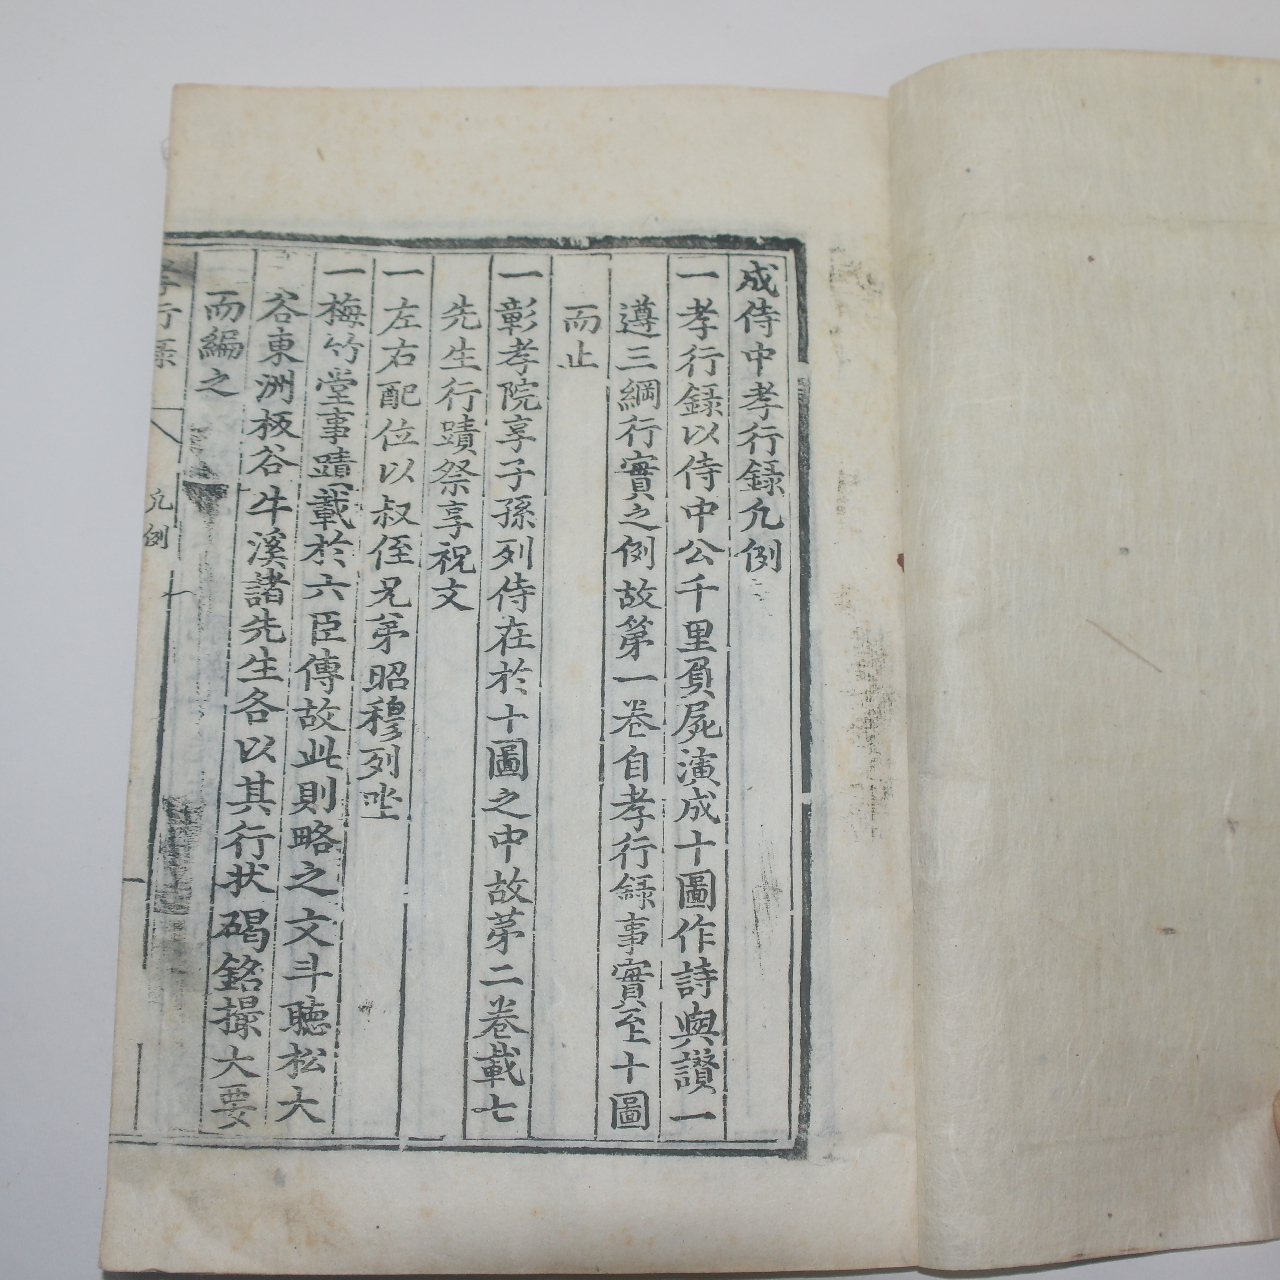 成侍中孝行録凡例
一孝行録以侍中公千里負屍演成十圖作詩與讃一
遵三綱行實之例故第一卷自孝行録事實至十圖
而止
一彰孝院享子孫列侍在於十圖之中故第二卷載七
先生行蹟祭享祝文
一左右配位以叔侄兄弟昭穆列坐
一梅竹堂事蹟載於六臣傳故此則略之文斗聽松大
谷東洲板谷牛溪諸先生各以其行状碣銘撮大要
而編之
孝行録 凡例 一